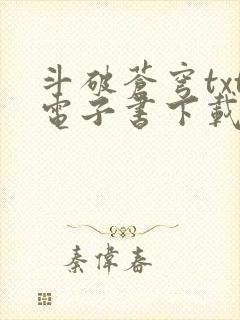 斗破蒼穹txt
電子書下載
秦偉春